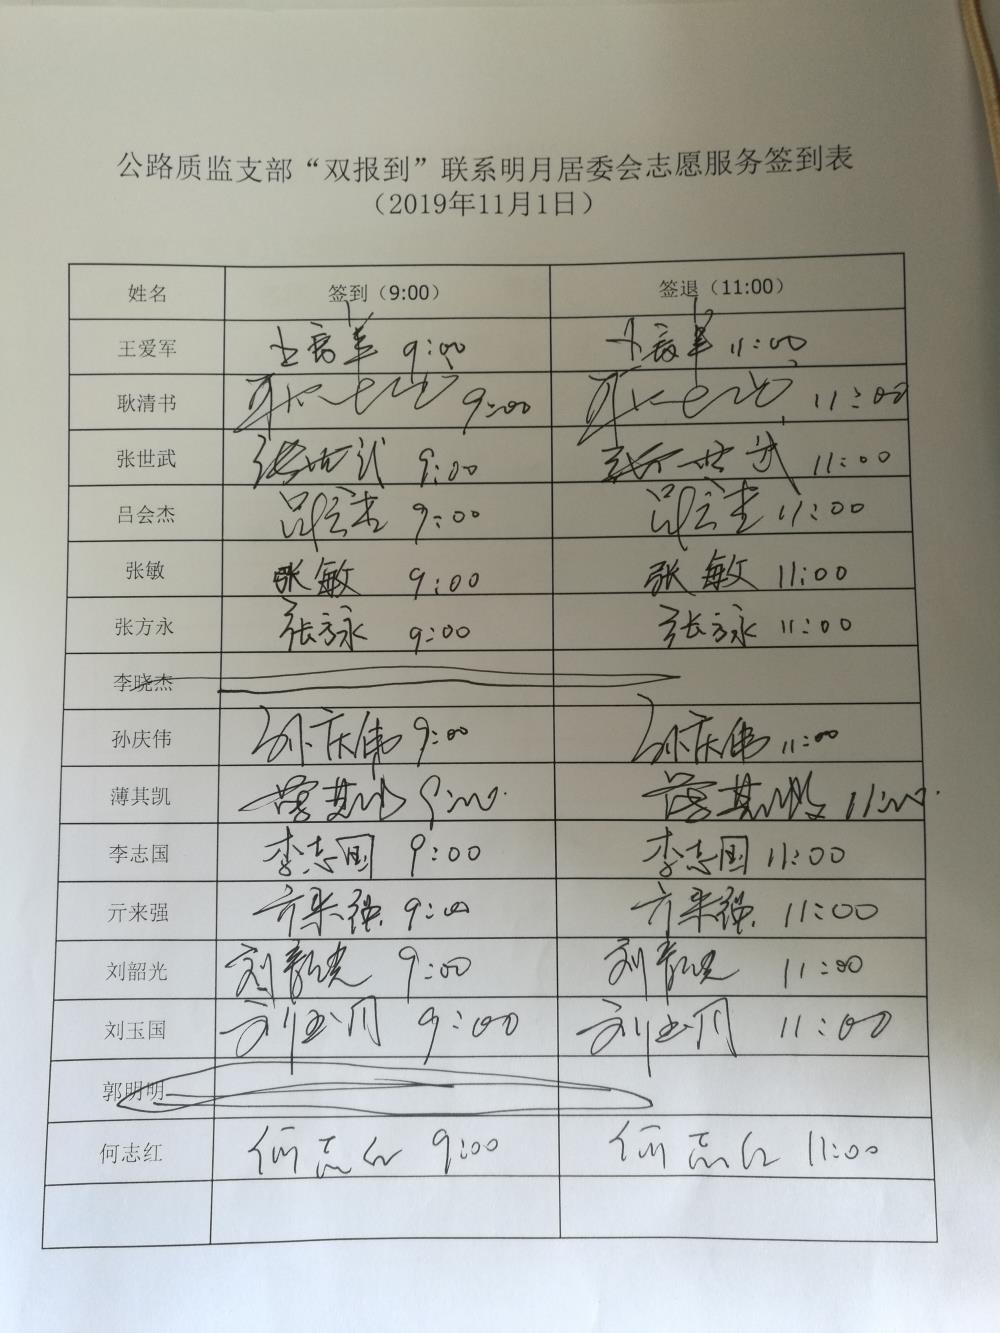 公路质监支部“双报到”联系明月居委会志愿服务签到表
（2019年11月1日）
姓名 签到（9:00） 签退（11:00）
王爱军 王爱军 9:00 王爱军 11:00
耿清书 耿清书 9:00 耿清书 11:00
张世武 张世武 9:00 张世武 11:00
吕会杰 吕会杰 9:00 吕会杰 11:00
张敏 张敏 9:00 张敏 11:00
张方永 张方永 9:00 张方永 11:00
李晓杰
孙庆伟 孙庆伟 9:00 孙庆伟 11:00
薄其凯 薄其凯 9:00 薄其凯 11:00
李志国 李志国 9:00 李志国 11:00
亓来强 亓来强 9:00 亓来强 11:00
刘韶光 刘韶光 9:00 刘韶光 11:00
刘玉国 刘玉国 9:00 刘玉国 11:00
郭明明
何志红 何志红 9:00 何志红 11:00